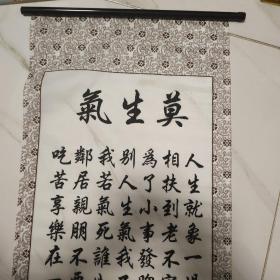 莫生氣
人生就象一場
相扶到老不容
為了小事發脾
別人生氣我不
我若氣死誰
鄰居親朋不要
吃苦享樂在一